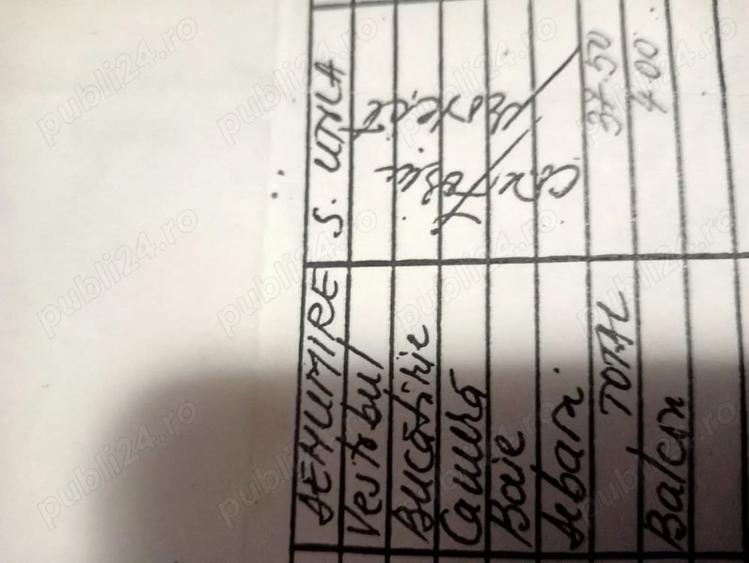 DENUMIRE S. UTILA
Vestibul
Bucătărie
Cameră
Baie
Debara
TOTAL 37.50
Balcon 4.00
Conform
proiect
publi24.ro